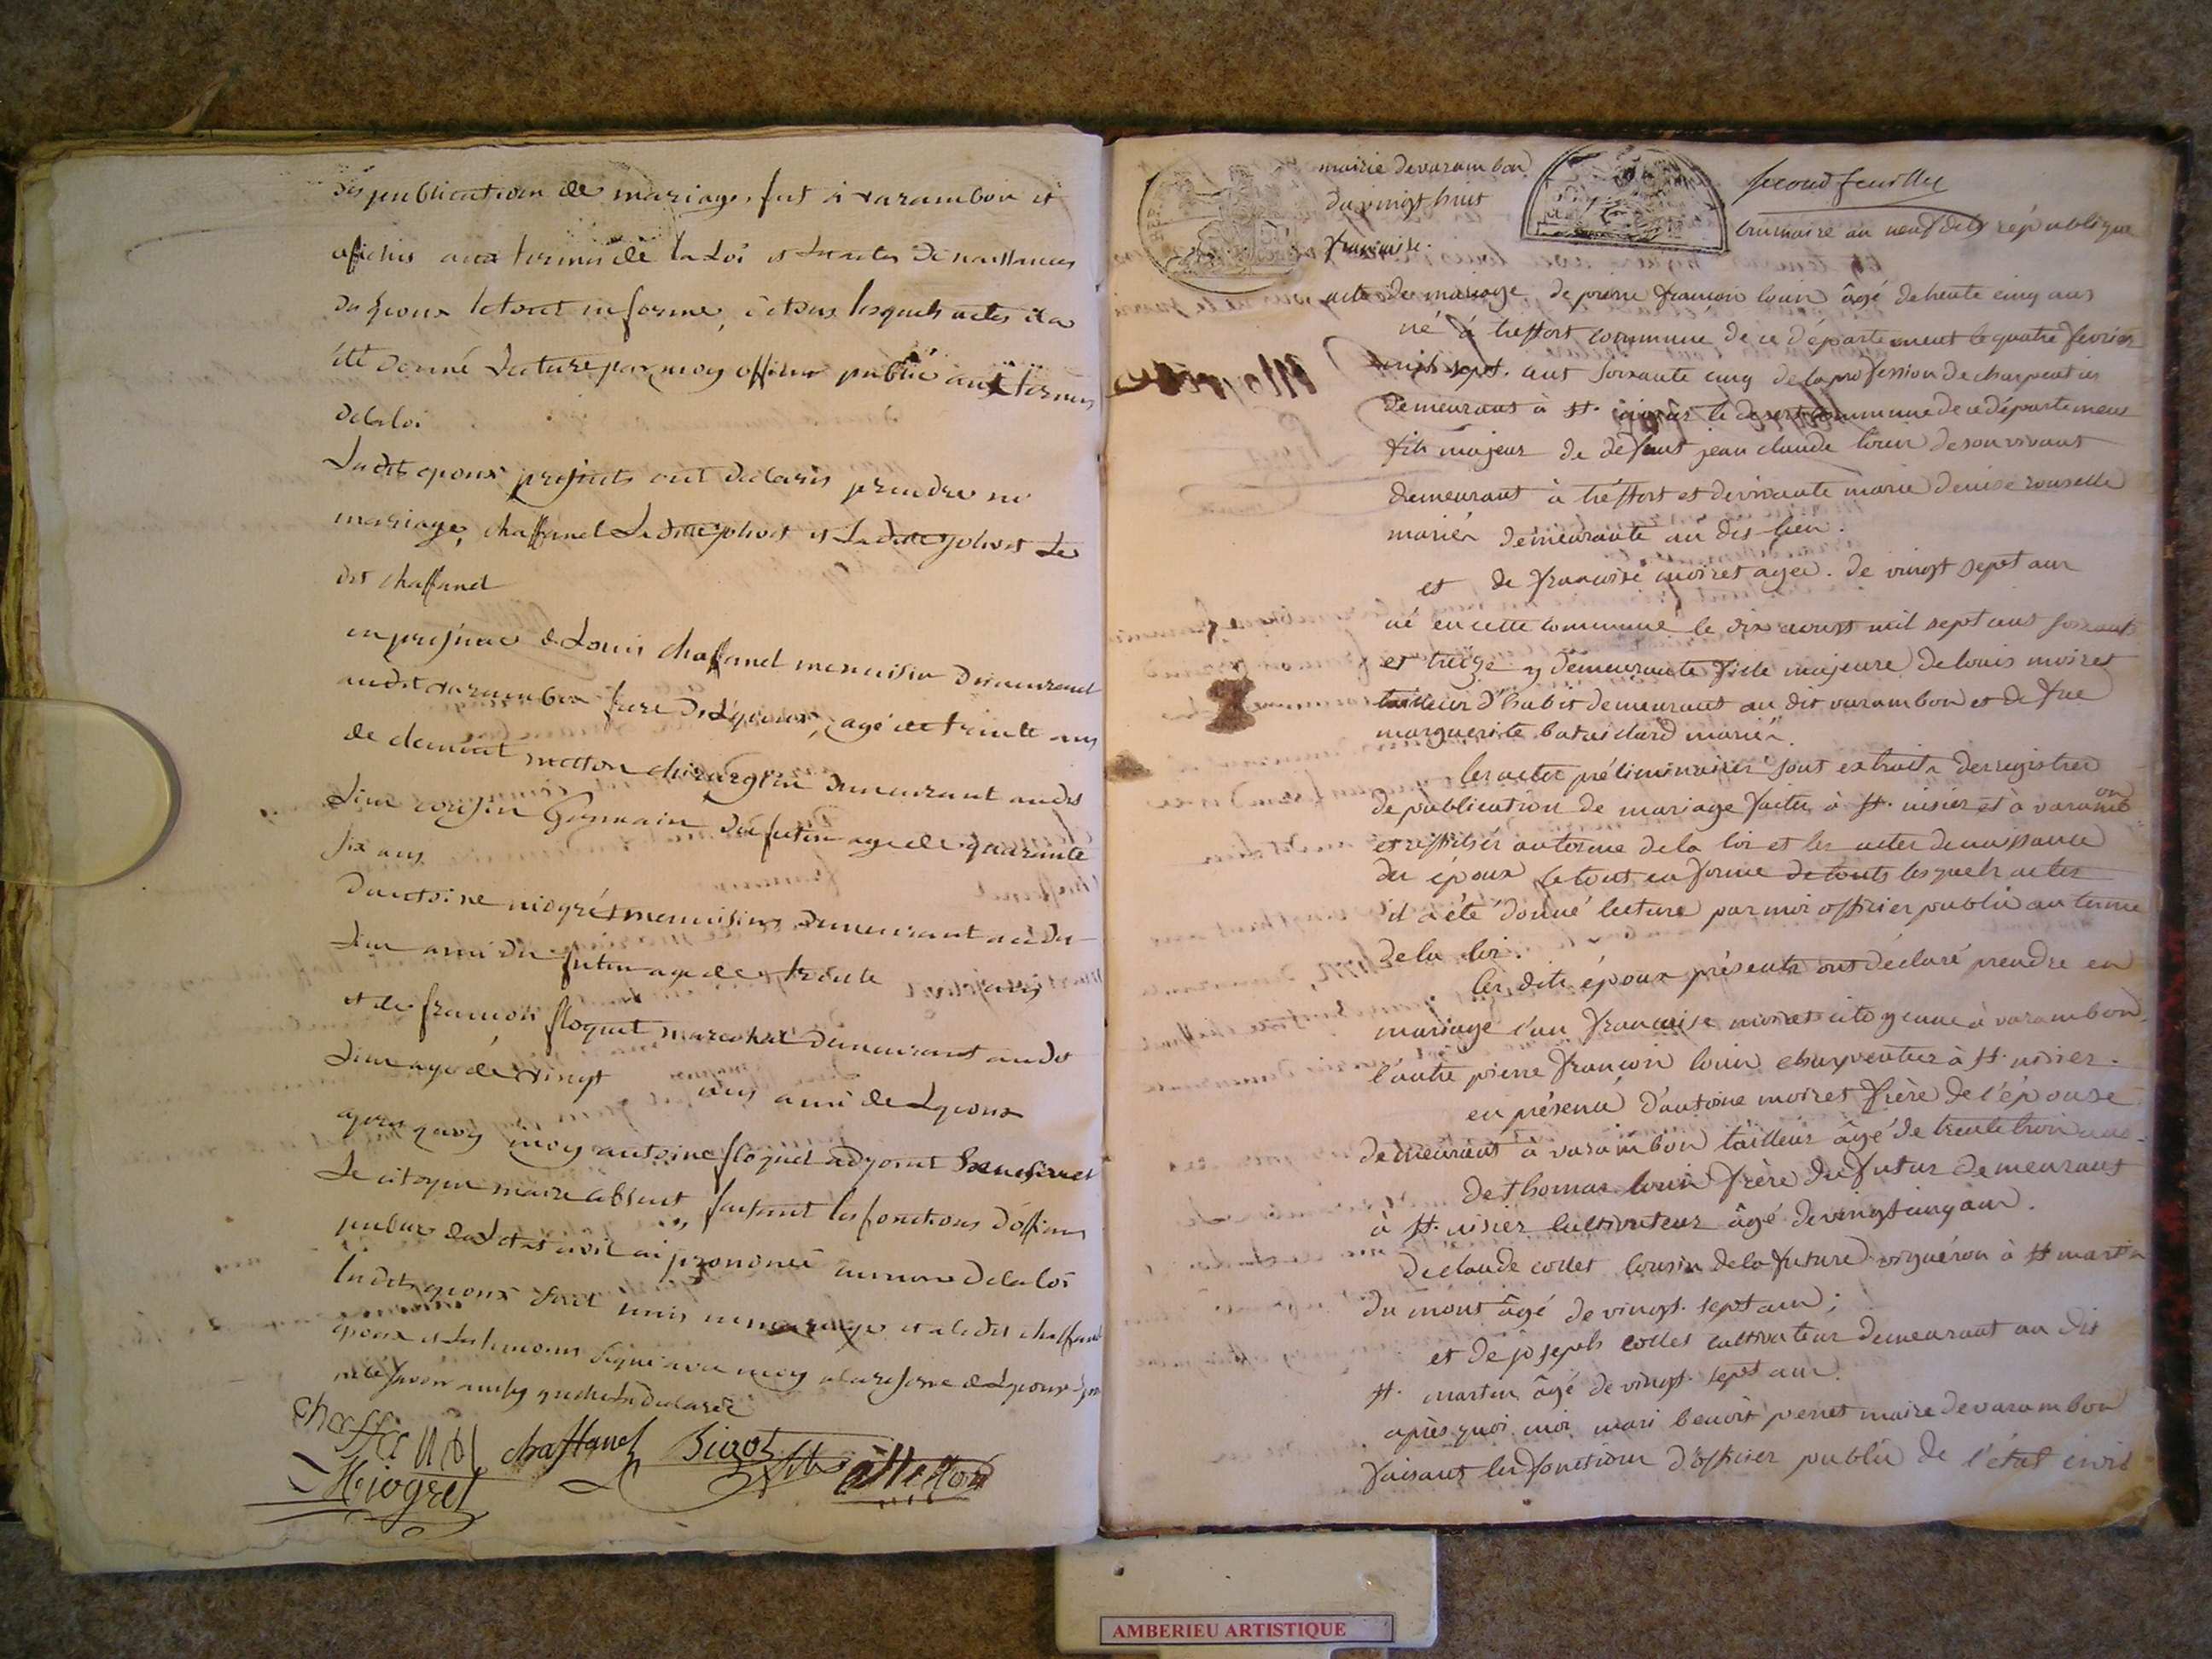 des publication de mariage, fait à varambon et
afichés aux termes de la Loi et Les actes de naissances
des Epoux le tout en forme, de tous lesquels actes il a
été donné Lecture par moy officier public aux termes
de la loi
Les dits epoux presents ont declarés prendre en
mariage, chaffanel La ditte jolivet et La ditte jolivet Le
dit chaffanel
en presence de Louis chaffanel menuisier demeurant
audit varambon frere de L'epoux, agé de trente ans
de clement metton chirurgien demeurant au dit
Lieu cousin Germain du futur age de quarante
six ans
d'antoine miogrét menuisier demeurant au dit
Lieu ami du futur age de trente ans
et de francois floquet marechal demeurant au dit
Lieu agé de vingt ans ami de Lepoux
apres quoy moy antoine floquet adjoint
Le citoyen maire absent, faisant les fonctions d'officier
public de L'etat civil ai prononcé au nom de la loi
Les dits epoux sont unis en mariage et a le dit chaffanel
epoux et Les temoins signé avec moy a la reserve de L'epouse
ne le savoir
chaffanel chaffanel
Miogret Metton
mairie de varambon second feuillet
du vingt huit brumaire an neuf de la république
française.
acte de mariage de pierre françois louin âgé de trente cinq ans
né à treffort commune de ce département le quatre fevrier
mil sept. cent soixante cinq de la profession de charpentier
demeurant à st. nizier le desert commune de ce département
fils majeur de défunt jean claude louin de son vivant
demeurant à tréffort et de vivante marie denise rouselle
mariés demeurante au dis lieu.
et de françoise moiret agée. de vingt sept ans
né en cette commune le dix aoust mil sept cent soixante
et treize y demeurante fille majeure de louis moiret
tailleur d'habit demeurant au dit varambon et de fue
marguerite bataillard mariés.
les actes préliminaires sont extraits des registres
de publication de mariage faites à st. nisier et à varambon
et affichés au terme de la loi et les actes de naissance
des époux le tout en forme de touts lesquels actes
il a été donné lecture par moi officier public au terme
de la loi.
les dits époux présents ont déclaré prendre en
mariage l'un françoise moiret citoyenne à varambon
l'autre pierre françois louin charpentier à st. nisier.
en présence d'antoine moiret frère de l'épouse
demeurant à varambon tailleur âgé de trente trois ans.
de thomas louin frère du futur demeurant
à st. nisier cultivateur âgé de vingt cinq ans.
de claude collet cousin de la future vigneron à st martin
du mont âgé de vingt. sept ans;
et de joseph collet cultivateur demeurant au dit
st. martin âgé de vingt. sept ans.
après quoi moi mari benoit perret maire de varambon
faisant les fonctions d'officier public de l'état civil
AMBERIEU ARTISTIQUE